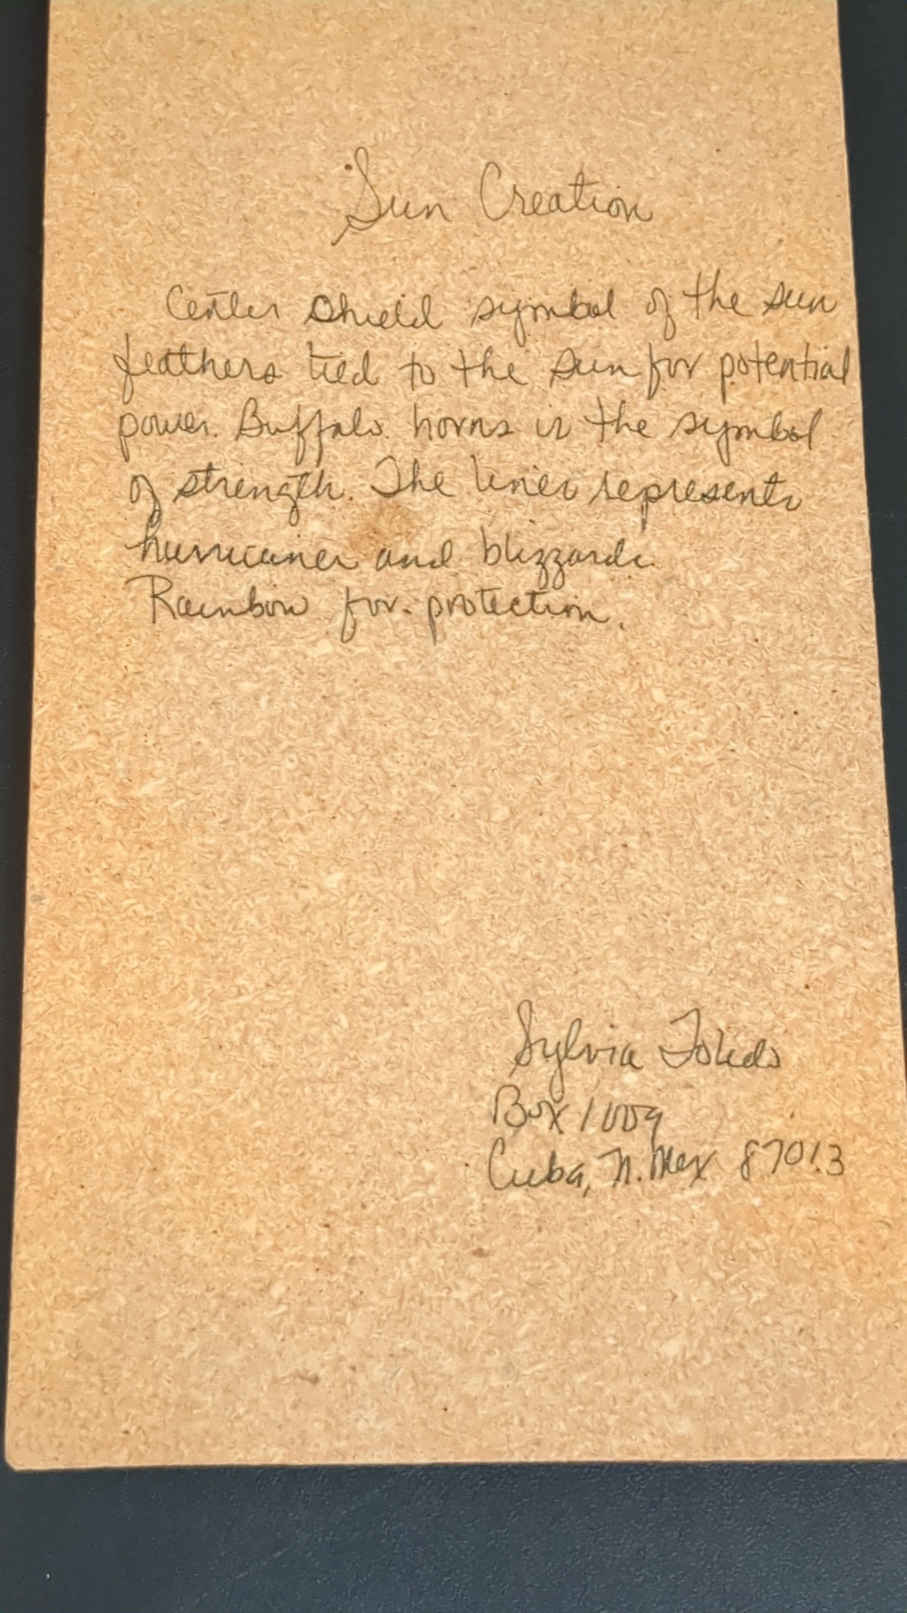 Sun Creation
Center shield symbol of the sun
feathers tied to the sun for potential
power. Buffalo horns is the symbol
of strength. The lines represents
hurricanes and blizzards.
Rainbow for protection.
Sylvia Toledo
Box 1009
Cuba, N. Mex 87013